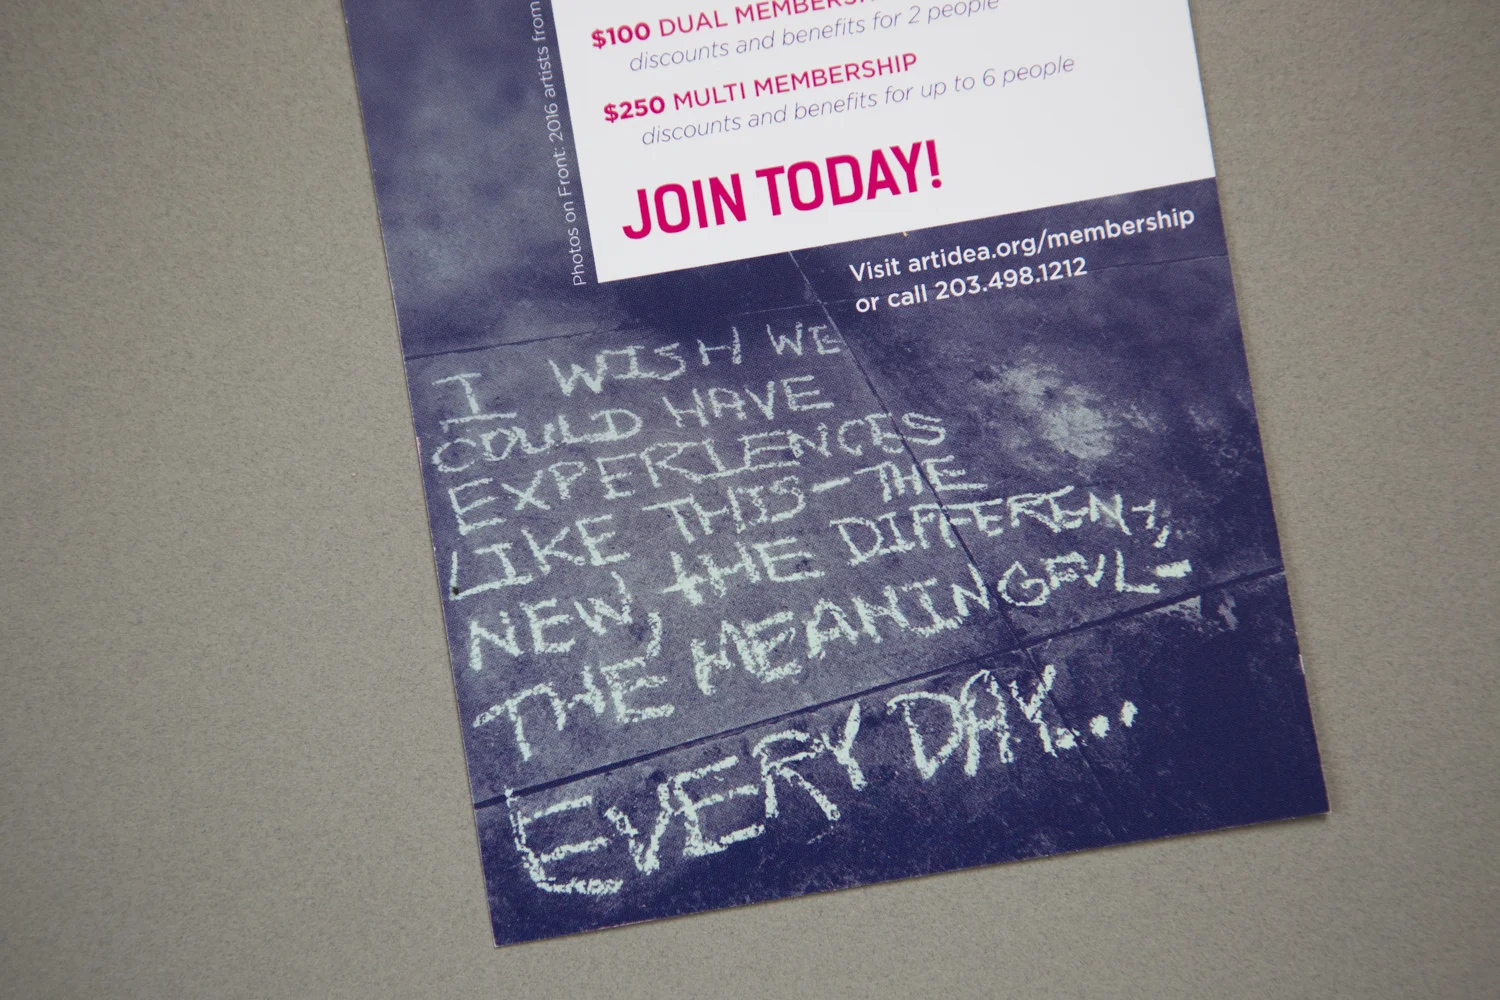 $100 DUAL MEMBERSHIP
discounts and benefits for 2 people
$250 MULTI MEMBERSHIP
discounts and benefits for up to 6 people
JOIN TODAY!
Photos on Front: 2016 artists from
Visit artidea.org/membership
or call 203.498.1212
I WISH WE
COULD HAVE
EXPERIENCES
LIKE THIS—THE
NEW, THE DIFFERENT,
THE MEANINGFUL—
EVERY DAY...